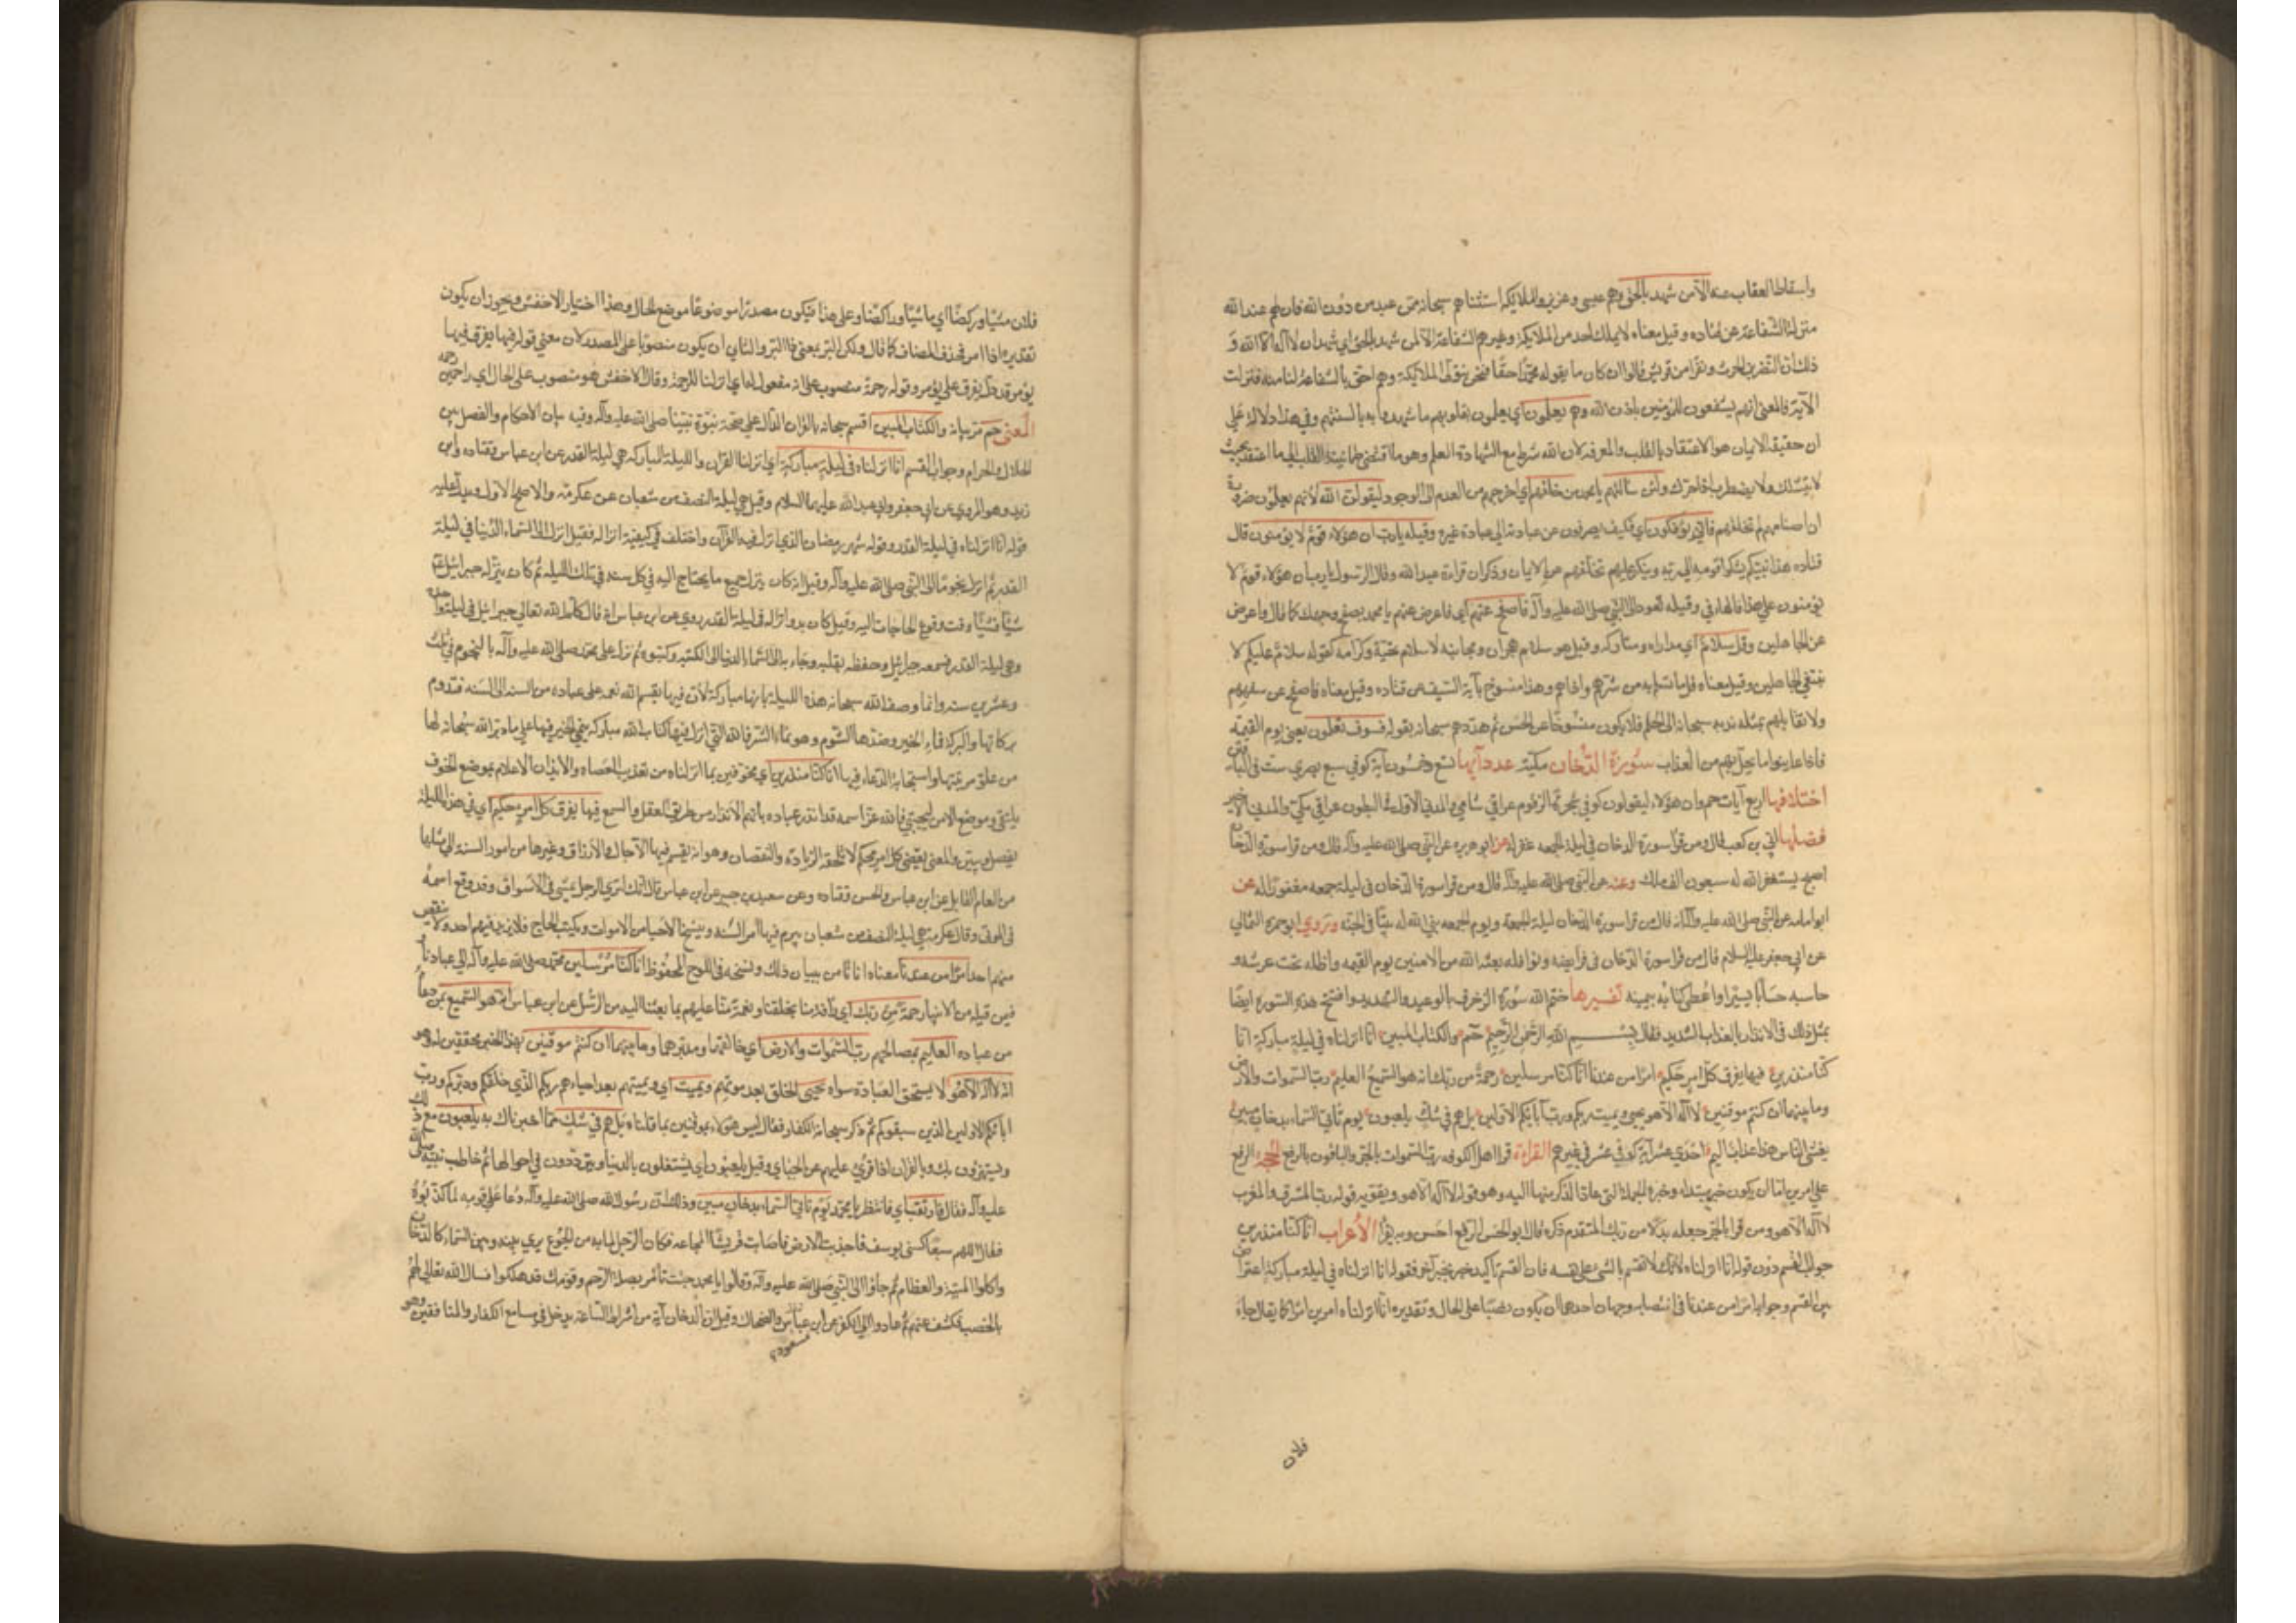 واسقاط العقاب عنه الا من شهد بالحق وهم عيسى وعزير والملائكه استثناهم سبحانه ممن عبد من دون الله فان لهم عند الله
منزلة الشفاعة عن قتاده وقيل معناه لا يملك احد من الملائكة وغيرهم الشفاعة الا لمن شهد بالحق اي شهد ان لا اله الا الله و
ذلك ان النضر بن الحرث ونفرا من قريش قالوا ان كان ما يقوله محمد حقا فنحن نتولى الملائكة وهم احق بالشفاعة لنا منه فنزلت
الآية فالمعنى انهم يشفعون للمؤمنين باذن الله وهم يعلمون اي يعلمون بقلوبهم ما شهدوا به بالسنتهم وفي هذا دلالة على
ان حقيقة الايمان هو الاعتقاد بالقلب والمعرفه لان الله شرط مع الشهادة العلم وهو ما اقتضى طمانينة القلب الى ما اعتقده بحيث
لا يتشكك ولا يضطرب اذا حرك ولئن سألتهم يا محمد من خلقهم اي اخرجهم من العدم الى الوجود ليقولن الله لانهم يعلمون ضرورة
ان اصنامهم لم تخلقهم فانى يؤفكون اي فكيف يصرفون عن عبادته الى عبادة غيره وقيله يا رب ان هؤلاء قوم لا يؤمنون قال
قتاده هذا نبيكم يشكوا قومه الى ربه وينكر عليهم تخلفهم عن الايمان وذكر ان قراءة عبد الله وقال الرسول يا رب ان هؤلاء قوم لا
يؤمنون على هذا فالهاء في وقيله تعود الى النبي صلى الله عليه وآله فاصفح عنهم اي فاعرض عنهم يا محمد بصفح وجهك كما قال واعرض
عن الجاهلين وقل سلام اي مداراه ومتاركه وقيل هو سلام هجران ومجانبه لا سلام تحية وكرامه كقوله سلام عليكم لا
نبتغي الجاهلين وقيل معناه قل ما تسلم به من شرهم واذاهم وهذا منسوخ بآية السيف عن قتاده وقيل معناه فاصفح عن سفههم
ولا تقابلهم بمثله ندبه سبحانه الى الحلم فلا يكون منسوخا عن الحسن ثم هددهم سبحانه بقوله فسوف تعلمون يعني يوم القيمة
فاذا عاينوا ما يحل بهم من العذاب سورة الدخان مكية عدد آيها تسع وخمسون آية كوفي سبع بصري ست في الباقين
اختلافها اربع آيات حم وان هؤلاء ليقولون كوفي شجرة الزقوم عراقي شامي والمدني الاول في البطون عراقي مكي والمدني الاخير
فضلها ابي بن كعب قال ومن قرأ سورة الدخان في ليلة الجمعه غفر له عن ابو هريره عن النبي صلى الله عليه وآله قال ومن قرا سورة الدخان
اصبح يستغفر الله له سبعون الف ملك وعنه عن النبي صلى الله عليه وآله قال ومن قرا سورة الدخان في ليلة جمعه مغفورا له عن
ابو امامه عن النبي صلى الله عليه وآله قال من قرا سورة الدخان ليلة الجمعة ويوم الجمعه بنى الله له بيتا في الجنة وروى ابو حمزه الثمالي
عن ابي جعفر عليه السلام قال من قرا سورة الدخان في فرائضه ونوافله بعثه الله من الآمنين يوم القيمه واظله تحت عرشه و
حاسبه حسابا يسيرا واعطى كتابه بيمينه تفسيرها ختم الله سورة الزخرف بالوعيد والتهديد وافتتح هذه السوره ايضا
بمثل ذلك في الانذار بالعذاب الشديد فقال بسم الله الرحمن الرحيم حم والكتاب المبين انا انزلناه في ليلة مباركة انا
كنا منذرين فيها يفرق كل امر حكيم امرا من عندنا انا كنا مرسلين رحمة من ربك انه هو السميع العليم رب السموات والارض
وما بينهما ان كنتم موقنين لا اله الا هو يحيي ويميت ربكم ورب آبائكم الاولين بل هم في شك يلعبون يوم تاتي السماء بدخان مبين
يغشى الناس هذا عذاب اليم احدى عشر آية كوفي عشر في غيرهم القراءة قرا اهل الكوفه رب السموات بالجر والباقون بالرفع الحجة الرفع
على امرين اما ان يكون خبر مبتدا وخبره الجملة التي عاد الذكر منها اليه وهو قوله لا اله الا هو ويقويه قوله رب المشرق والمغرب
لا اله الا هو ومن قرا بالجر جعله بدلا من ربك المتقدم ذكره قال ابو الحسن الرفع احسن وبه يقرأ الاعراب انا كنا منذرين
جواب القسم دون قوله انا انزلناه لانك لا تقسم بالشئ على نفسه فان القسم تاكيد خبر بخبر آخر فقوله انا انزلناه في ليلة مباركة اعتراض
بين القسم وجوابه امرا من عندنا في انتصابه وجهان احدهما ان يكون نصبا على الحال وتقديره انا انزلناه امرين امرا كما يقال جاء
فلان
فلان مشيا وركضا اي ماشيا وراكضا وعلى هذا فيكون مصدرا موضوعا موضع الحال وهذا اختيار الاخفش ويجوز ان يكون
تقديره اذا امر فحذف المضاف كما قال ولكن البر بمعنى ذا البر والثاني ان يكون منصوبا على المصدر لان معنى قوله فيها يفرق فيها
يؤمر قد دل يفرق على يؤمر وقوله رحمة منصوب على انه مفعول له اي انزلنا للرحمة وقال الاخفش هو منصوب على الحال اي راحمين رحمه
المعنى حم مر بيانه والكتاب المبين اقسم سبحانه بالقرآن الدال على صحة نبوة نبينا صلى الله عليه وآله وفيه بيان الاحكام والفصل بين
الحلال والحرام وجواب القسم انا انزلناه في ليلة مباركة اي انزلنا القرآن والليلة المباركه هي ليلة القدر عن ابن عباس وقتاده وابن
زيد وهو المروي عن ابي جعفر وابي عبد الله عليهما السلام وقيل هي ليلة النصف من شعبان عن عكرمة والاصح الاول ويدل عليه
قوله انا انزلناه في ليلة القدر وقوله شهر رمضان الذي انزل فيه القرآن واختلف في كيفية انزاله فقيل انزل الى السماء الدنيا في ليلة
القدر ثم انزل نجوما الى النبي صلى الله عليه وآله وقيل انه كان ينزل جميع ما يحتاج اليه في كل سنه في تلك الليله ثم كان ينزله جبرائيل ع
شيئا فشيئا وقت وقوع الحاجات اليه وقيل كان بدو انزاله في ليلة القدر روي عن ابن عباس انه قال كلم الله تعالى جبرائيل في ليلة واحدة
وهي ليلة القدر فسمعه جبرائيل وحفظه بقلبه وجاء به الى السماء الدنيا الى الكتبه وكتبوه ثم نزل على محمد صلى الله عليه وآله بالنجوم في ثلث
وعشرين سنه وانما وصف الله سبحانه هذه الليله بانها مباركة لان فيها يقسم الله نعمه على عباده من السنه الى السنه فتدوم
بركاتها والبركة نماء الخير وضدها الشوم وهو نماء الشر فالليلة التي انزل فيها كتاب الله مباركه ينمى الخير فيها على ما دبر الله سبحانه لها
من علو مرتبتها واستجابة الدعاء فيها انا كنا منذرين اي مخوفين بما انزلناه من تعذيب العصاه والانذار الاعلام بموضع الخوف
ليتقى وموضع الامن ليجتبى فالله عز اسمه قد انذر عباده باتم الانذار من طريق العقل والسمع فيها يفرق كل امر حكيم اي في هذه الليلة
يفصل ويبين والمعنى يقضى كل امر محكم لا تلحقه الزيادة والنقصان وهو انه يقسم فيها الآجال والارزاق وغيرها من امور السنة الى مثلها
من العام القابل عن ابن عباس والحسن وقتاده وعن سعيد بن جبير عن ابن عباس قال انك لترى الرجل يمشي في الاسواق وقد وقع اسمه
في الموتى وقال عكرمة هي ليلة النصف من شعبان يبرم فيها امر السنه وينسخ الاحياء من الاموات ويكتب الحاج فلا يزيد فيهم احد ولا ينقص
منهم احد امرا من عندنا معناه انا نامر ببيان ذلك ونسخه في اللوح المحفوظ انا كنا مرسلين محمد صلى الله عليه وآله الى عبادنا
كمن قبله من الانبياء رحمة من ربك اي رأفة منا بخلقنا ونعمة منا عليهم بما بعثنا اليه من الرسل عن ابن عباس انه هو السميع لمن دعاه
من عباده العليم بمصالحهم رب السموات والارض اي خالقهما ومدبرهما وما بينهما ان كنتم موقنين بهذا الخبر محققين له وهو
انه لا اله الا هو لا يستحق العبادة سواه يحيي الخلق بعد موتهم ويميت اي ويميتهم بعد احياءهم ربكم الذي خلقكم ودبركم ورب
آبائكم الاولين الذين سبقوكم ثم ذكر سبحانه الكفار فقال ليس هؤلاء بموقنين بما قلناه بل هم في شك مما اخبرناك به يلعبون مع ذلك
ويستهزؤن بك وبالقرآن اذا قرئ عليهم عن الجبائي وقيل يلعبون اي يشتغلون بالدنيا ويترددون في احوالها ثم خاطب نبيه صلى الله
عليه وآله فقال فارتقب اي فانتظر يا محمد يوم تاتي السماء بدخان مبين وذلك ان رسول الله صلى الله عليه وآله دعا على قومه لما كذبوه
فقال اللهم سبعا كسني يوسف فاجدبت الارض فاصابت قريشا المجاعه فكان الرجل لما به من الجوع يرى بينه وبين السماء كالدخان
واكلوا الميتة والعظام ثم جاؤا الى النبي صلى الله عليه وآله وقالوا يا محمد جئت تامر بصلة الرحم وقومك قد هلكوا فسال الله تعالى لهم
بالخصب فكشف عنهم ثم عادوا الى الكفر عن ابن عباس والضحاك وقيل ان الدخان آية من اشراط الساعة يدخل في مسامع الكفار والمنافقين وهو
مسعود